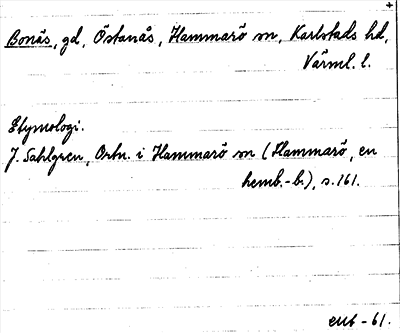 +
Bonäs, gd, Östanås, Hammarö sn, Karlstads hd,
Värml. l.
Etymologi.
J. Sahlgren, Ortn. i Hammarö sn (Hammarö, en
hemb.-b.), s. 161.
EUB -61.